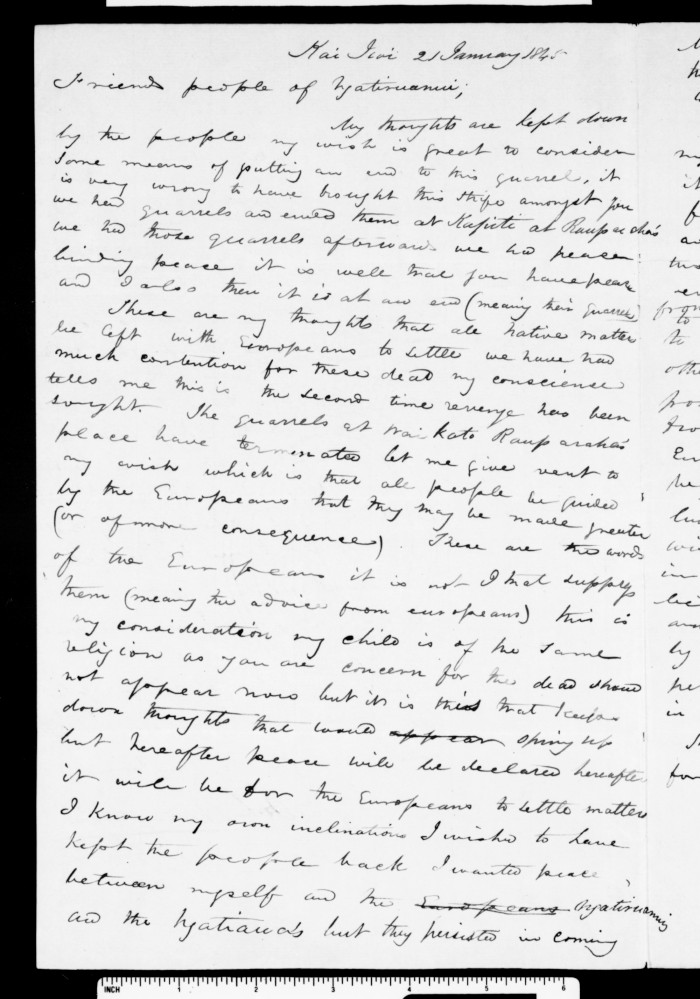 Kai Iwi 21 January 1845
Friends people of Ngatiruanui;
My thoughts are kept down
by the people my wish is great to consider
some means of putting an end to this quarrel, it
is very wrong to have brought this strife amongst you
we had quarrels and ended them at Kapiti at Rauparaha's
we had those quarrels afterwards we had peace
binding peace it is well that you have peace
and I also then it is at an end (meaning their quarrel)
These are my thoughts that all native matter
be left with Europeans to settle we have had
much contention for these dead my consciense
tells me this is the second time revenge has been
sought. The quarrels at Waikato Rauparaha's
place have terminated let me give vent to
my wish which is that all people be guided
by the Europeans that they may be made greater
(or of more consequence). These are the words
of the Europeans it is not I that supplys
them (meaning the advice from europeans) this is
my consideration my child is of the same
religion as you are concern for the dead should
not appear now but it is this that keeps
down thoughts that would appear spring up
but hereafter peace will be declared hereafter
it will be for the Europeans to settle matters
I know my own inclinations I wished to have
kept the people back I wanted peace
between myself and the Europeans Ngatiruanui
and the Ngatiawa's but they persisted in coming